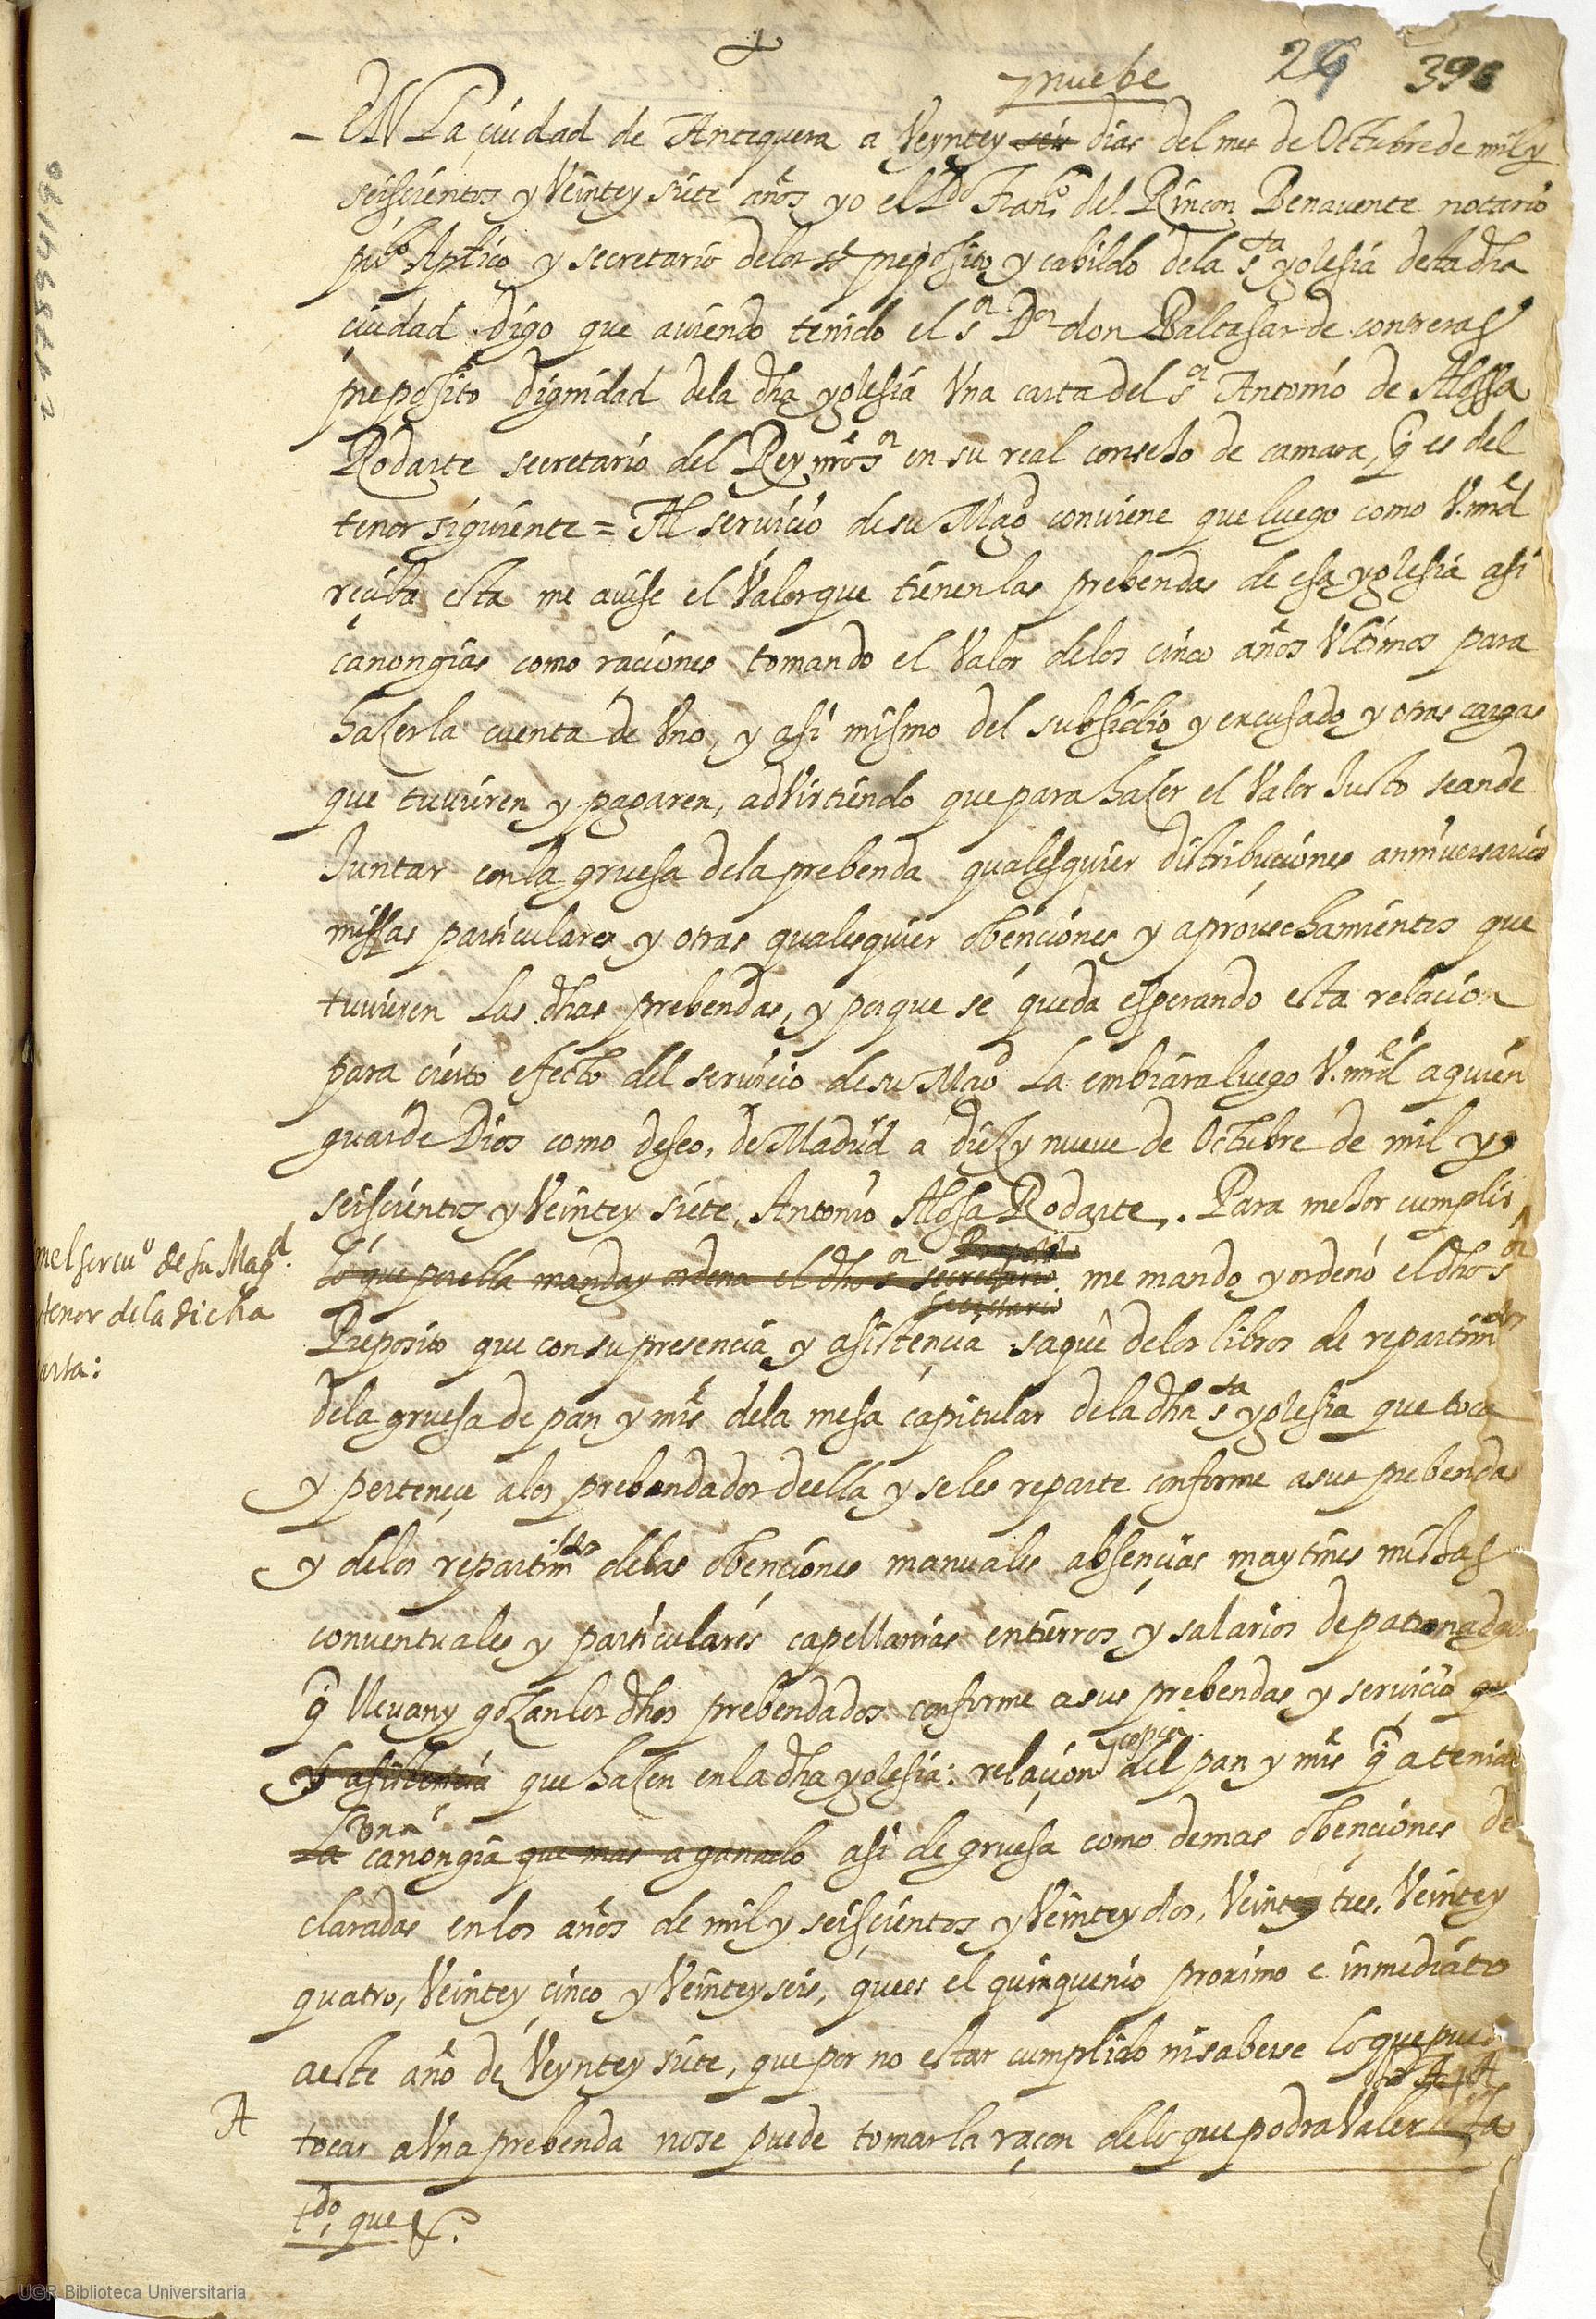 24 396
y nuebe
EN La ciudad de Antequera a Veyntey seis dias del mes de Octubre de mil y
seiscientos y Veintey siete años yo el Ldo Franco del Rincon Benavente notario
pubco Aptico y secretario delos ss preposito y cabildo dela sta yglesia dela dha
ciudad. digo que aviendo tenido el sor Dor don Baltasar de contreras
preposito dignidad dela dha yglesia Vna carta del sor Antonio de Alossa
Rodarte secretario del Rey nro sor en su real consejo de camara, q es del
tenor siguiente = Al servicio de su Magd conviene que luego como V.md
reciba esta me avise el Valor que tienen las prebendas de esa yglesia asi
canongias como raciones tomando el Valor delos cinco años Vltimos para
haçer la cuenta de Vno, y asi mismo del subsidio y excusado y otras cargas
que tuvieren y pagaren, adVirtiendo que para haçer el Valor Justo se ande
Juntar con la gruesa dela prebenda qualesquier distribuciones anniversarios
missas particulares y otras qualesquier obenciones y aprovechamientos que
tuvieren Las dhas prebendas, y porque se queda esperando esta relacion
para cierto efecto del servicio de su Magd La embiara luego V.md a quien
guarde Dios como deseo, de Madrid a diez y nueve de Octubre de mil y
seiscientos y Veintey siete, Antonio Alossa Rodarte. Para mejor cumplir
nel servo de su Magd.
tenor de la dicha
arta:
lo que por ella manda y ordena el dho sor secretario, me mando y ordenó el dho sor
Secretario
Preposito que con su presencia y asistencia saque delos libros de repartimtos
dela gruesa de pan y mrs dela mesa capitular dela dha sta yglesia que toca
y perteneçe alos prebendados de ella y se les reparte conforme a sus prebendas
y delos repartimtos delas obenciones manuales absençias maytines missas
conventuales y particulares capellanias entierros y salarios de patronados
q llevan y goçan los dhos prebendados conforme a sus prebendas y servicio que
y asistencia que haçen en la dha yglesia: relaçion del pan y mrs q a tenido
copia
Vna
La canongia que mas a ganado asi de gruesa como demas obenciones de
claradas en los años de mil y seisçientos y Veintey dos, Veintey tres, Veintey
quatro, Veintey cinco y Veintey seis, que es el quinquenio proximo e inmediato
a este año de Veyntey siete, que por no estar cumplido ni saberse lo que puede
A tocar a Vna prebenda no se puede tomar la raçon delo que podra Valer
tdo, que &.
UGR Biblioteca Universitaria